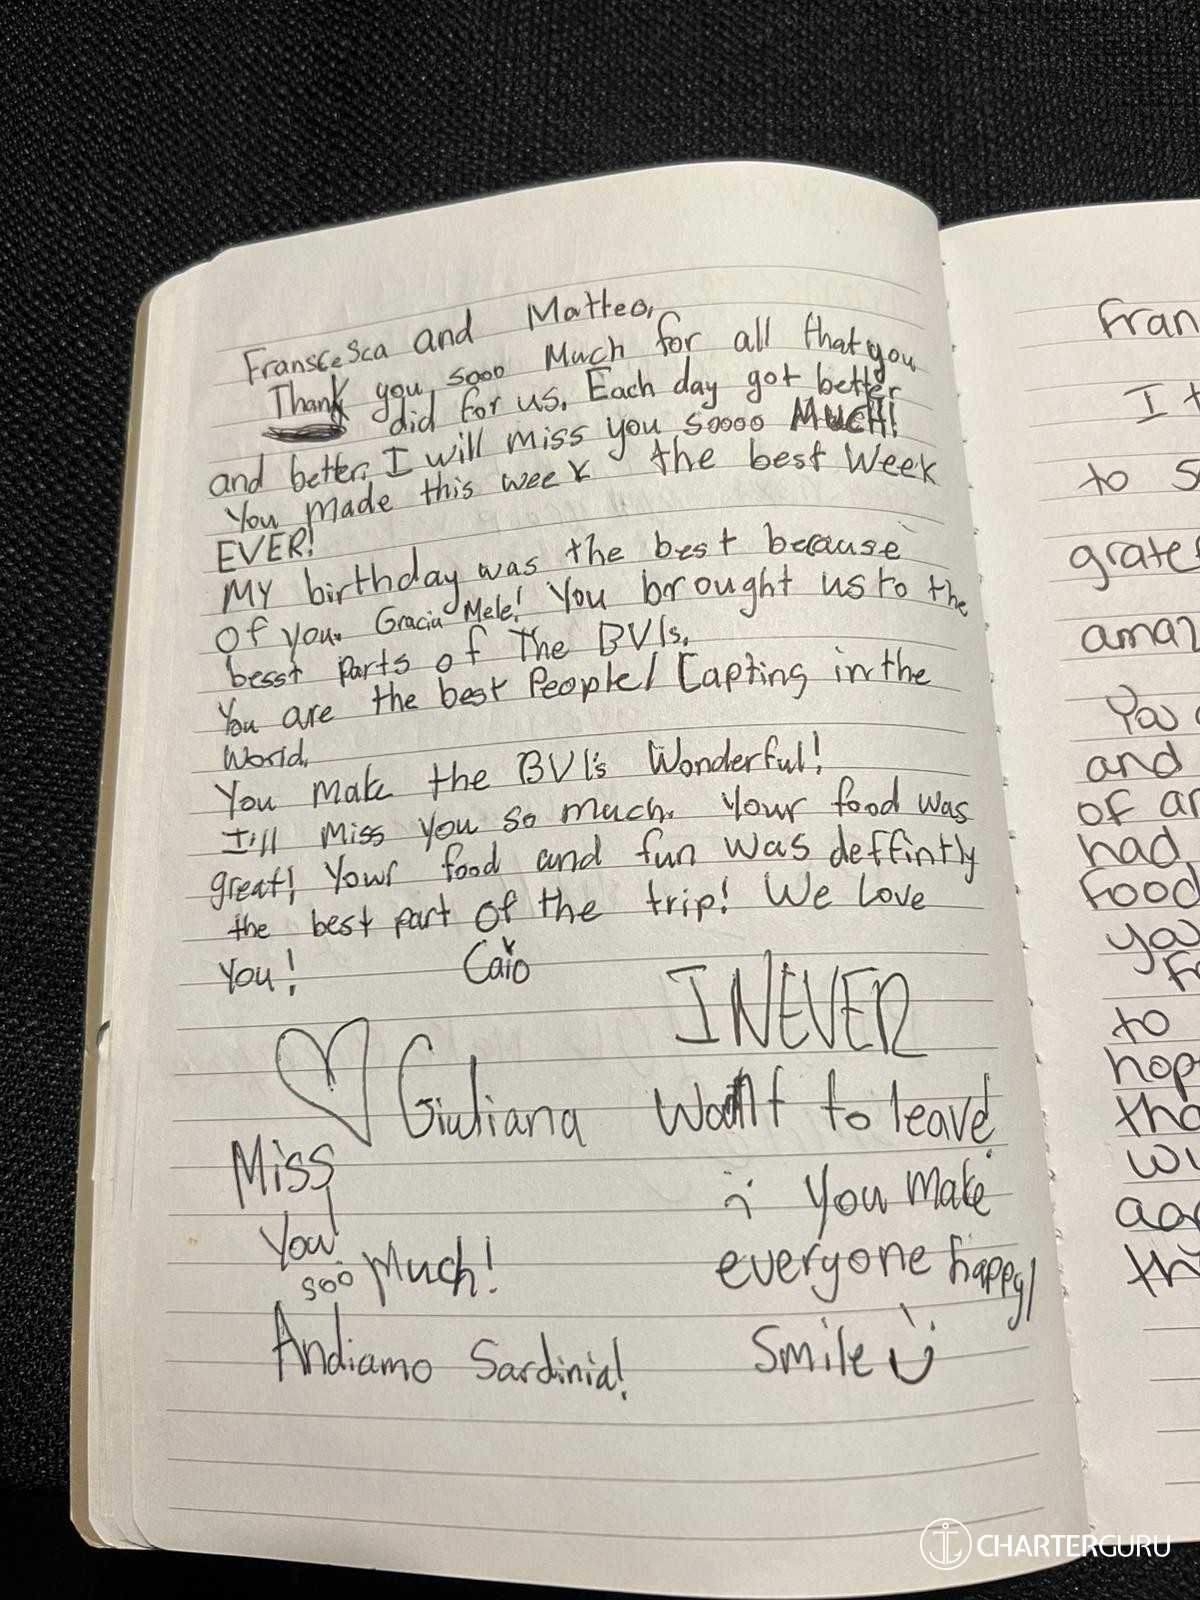 Franscesca and Matteo,
Thank you sooo Much for all that you
did for us. Each day got better
and better. I will miss you soooo MUCH!
You made this week the best Week
EVER!
My birthday was the best because
Of you. Gracia Mele! You brought us to the
besst parts of The BVIs.
You are the best People/ Capting in the
World.
You make the BVI's Wonderful!
I'ill Miss You so much. Your food was
great! Your food and fun was deffintly
the best part of the trip! We Love
You!
Caio
Giuliana
Miss
You!
soo Much!
Andiamo Sardinia!
I NEVER
Want to leave
:( You make
everyone happy!
Smile :)
Fran
I t
to s
grate
amaz
You
and
of
had
Food
you
to
hop
tha
wi
aga
thi
CHARTERGURU